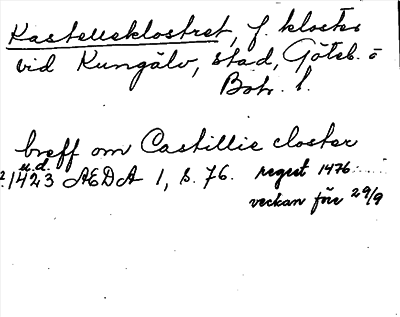 Kastelleklostret, f. kloster
vid Kungälv, stad, Göteb. o
Boh. l.
breff om Castillie closter
u.d.
? 1423 ÆDA 1, s. 76. regest 1476
veckan före 29/9